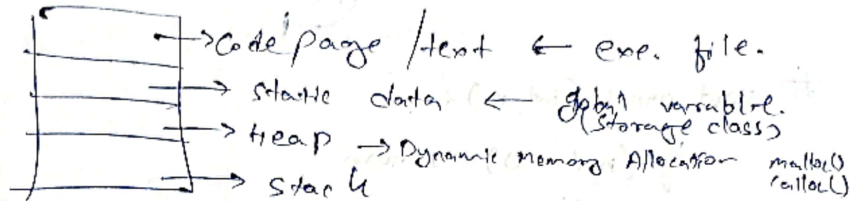 → Code page / text ← exe. file.
→ Static data ← global variable.
(storage class)
→ Heap → Dynamic Memory Allocation malloc()
calloc()
→ Stack